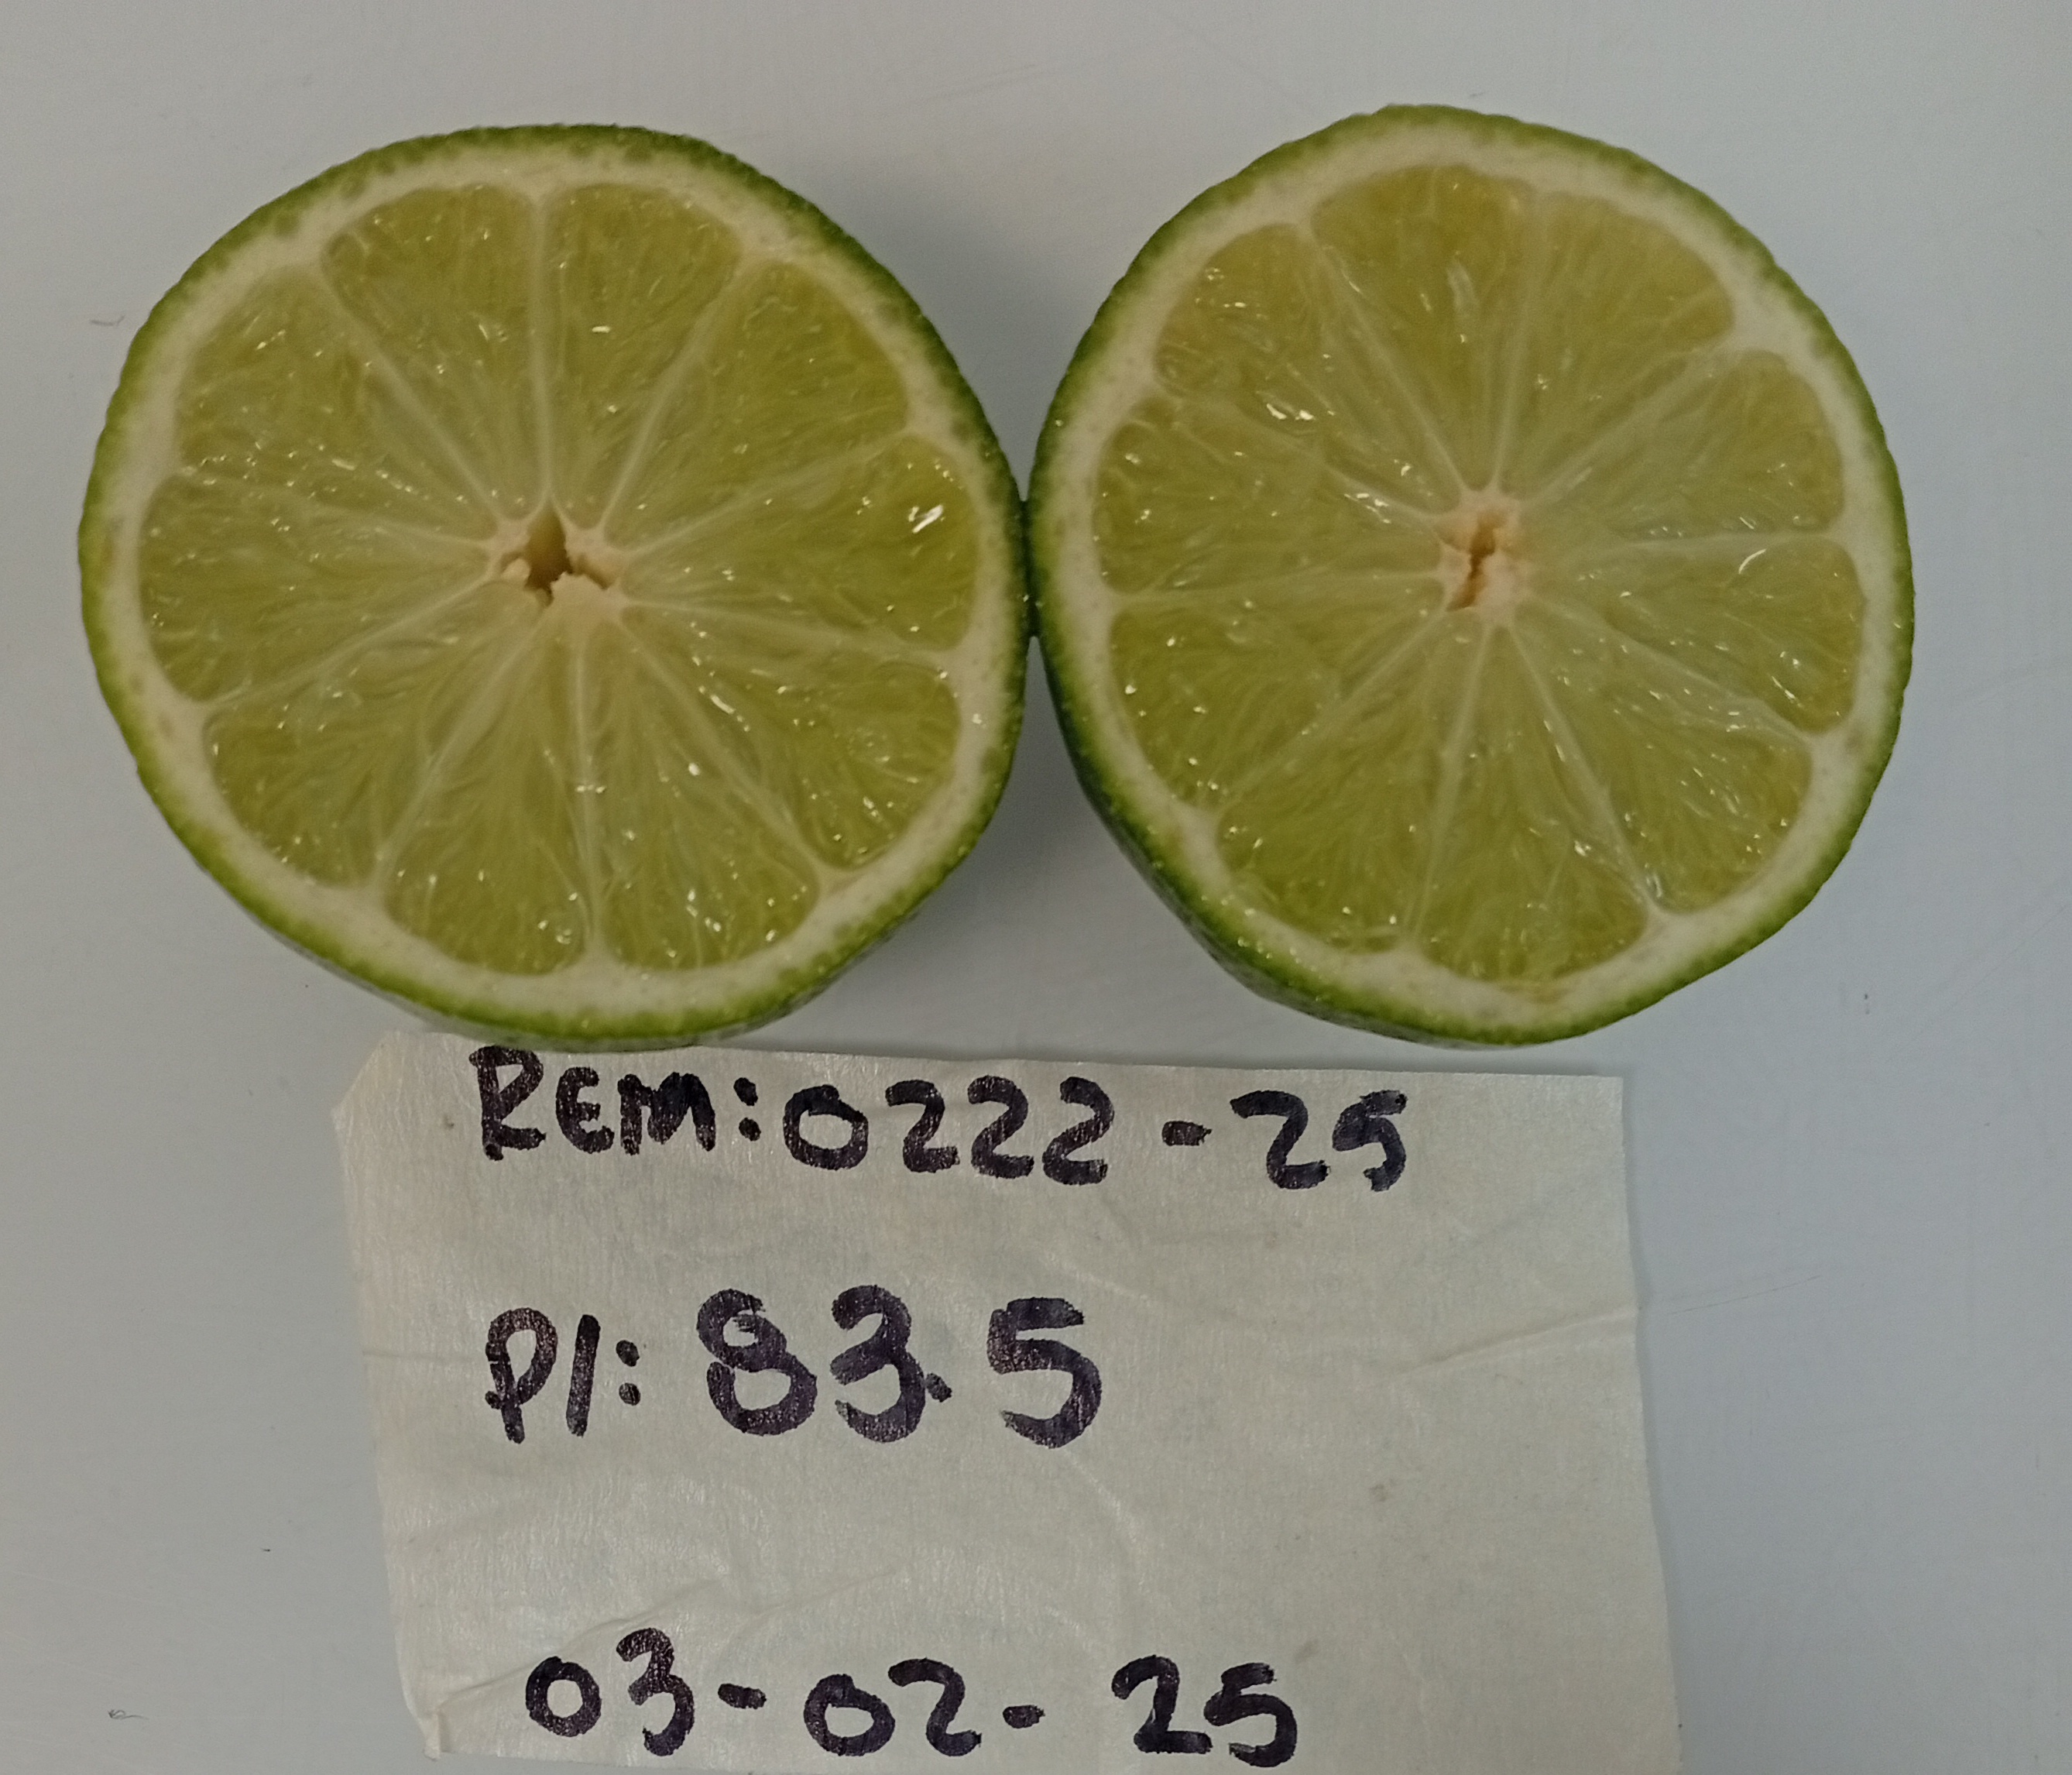 REM: 0222-25
PI: 83.5
03-02-25